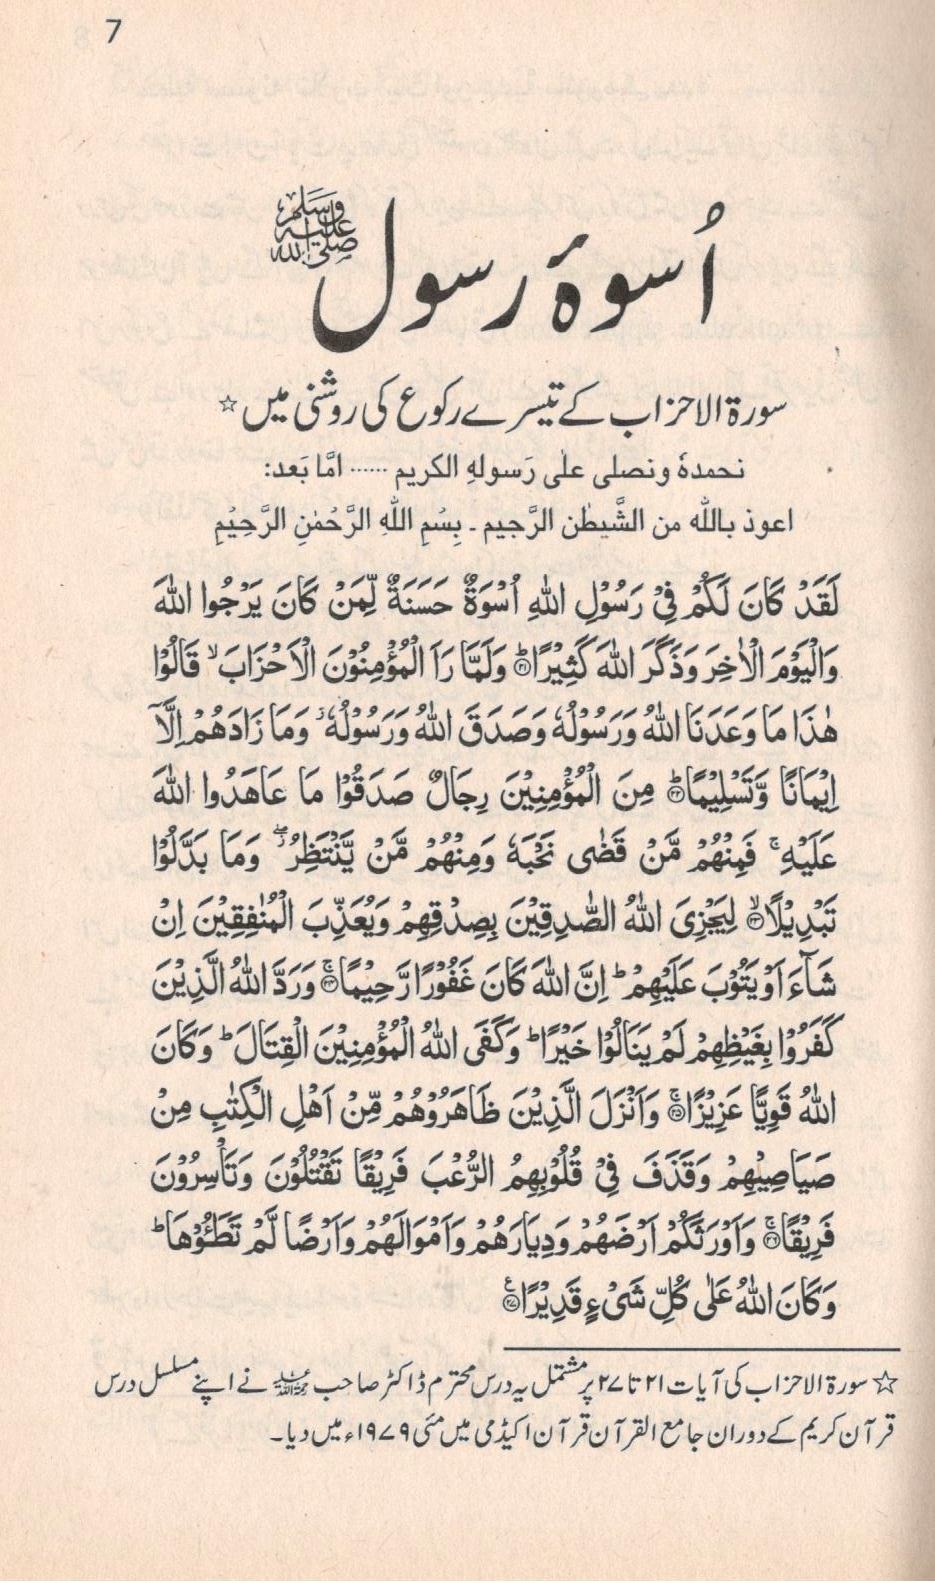 7
اُسوۂ رسول ﷺ
سورۃ الاحزاب کے تیسرے رکوع کی روشنی میں ☆
نحمدہٗ ونصلی علٰی رَسولہِ الکریم ...... امَّا بَعد:
اعوذ باللّٰه من الشَّیطٰن الرَّجیم ۔ بِسْمِ اللّٰهِ الرَّحْمٰنِ الرَّحِیْمِ
لَقَدْ كَانَ لَكُمْ فِیْ رَسُوْلِ اللّٰهِ اُسْوَةٌ حَسَنَةٌ لِّمَنْ كَانَ یَرْجُوا اللّٰهَ
وَالْیَوْمَ الْاٰخِرَ وَذَكَرَ اللّٰهَ كَثِیْرًا ؕ﴿۲۱﴾ وَلَمَّا رَاَ الْمُؤْمِنُوْنَ الْاَحْزَابَ ۙ قَالُوْا
هٰذَا مَا وَعَدَنَا اللّٰهُ وَرَسُوْلُهٗ وَصَدَقَ اللّٰهُ وَرَسُوْلُهٗ ؗ وَمَا زَادَهُمْ اِلَّاۤ
اِیْمَانًا وَّتَسْلِیْمًا ؕ﴿۲۲﴾ مِنَ الْمُؤْمِنِیْنَ رِجَالٌ صَدَقُوْا مَا عَاهَدُوا اللّٰهَ
عَلَیْهِ ۚ فَمِنْهُمْ مَّنْ قَضٰی نَحْبَهٗ وَمِنْهُمْ مَّنْ یَّنْتَظِرُ ۖؗ وَمَا بَدَّلُوْا
تَبْدِیْلًا ۙ﴿۲۳﴾ لِیَجْزِیَ اللّٰهُ الصّٰدِقِیْنَ بِصِدْقِهِمْ وَیُعَذِّبَ الْمُنٰفِقِیْنَ اِنْ
شَآءَ اَوْ یَتُوْبَ عَلَیْهِمْ ؕ اِنَّ اللّٰهَ كَانَ غَفُوْرًا رَّحِیْمًا ۚ﴿۲۴﴾ وَرَدَّ اللّٰهُ الَّذِیْنَ
كَفَرُوْا بِغَیْظِهِمْ لَمْ یَنَالُوْا خَیْرًا ؕ وَكَفَی اللّٰهُ الْمُؤْمِنِیْنَ الْقِتَالَ ؕ وَكَانَ
اللّٰهُ قَوِیًّا عَزِیْزًا ۚ﴿۲۵﴾ وَاَنْزَلَ الَّذِیْنَ ظَاهَرُوْهُمْ مِّنْ اَهْلِ الْكِتٰبِ مِنْ
صَیَاصِیْهِمْ وَقَذَفَ فِیْ قُلُوْبِهِمُ الرُّعْبَ فَرِیْقًا تَقْتُلُوْنَ وَتَاْسِرُوْنَ
فَرِیْقًا ۚ﴿۲۶﴾ وَاَوْرَثَكُمْ اَرْضَهُمْ وَدِیَارَهُمْ وَاَمْوَالَهُمْ وَاَرْضًا لَّمْ تَطَـُٔوْهَا ؕ
وَكَانَ اللّٰهُ عَلٰی كُلِّ شَیْءٍ قَدِیْرًا ﴿۲۷﴾ ع
☆ سورۃ الاحزاب کی آیات ۲۱ تا ۲۷ پر مشتمل یہ درس محترم ڈاکٹر صاحب رحمۃ اللہ علیہ نے اپنے مسلسل درس
قرآن کریم کے دوران جامع القرآن قرآن اکیڈمی میں مئی ۱۹۷۹ء میں دیا۔